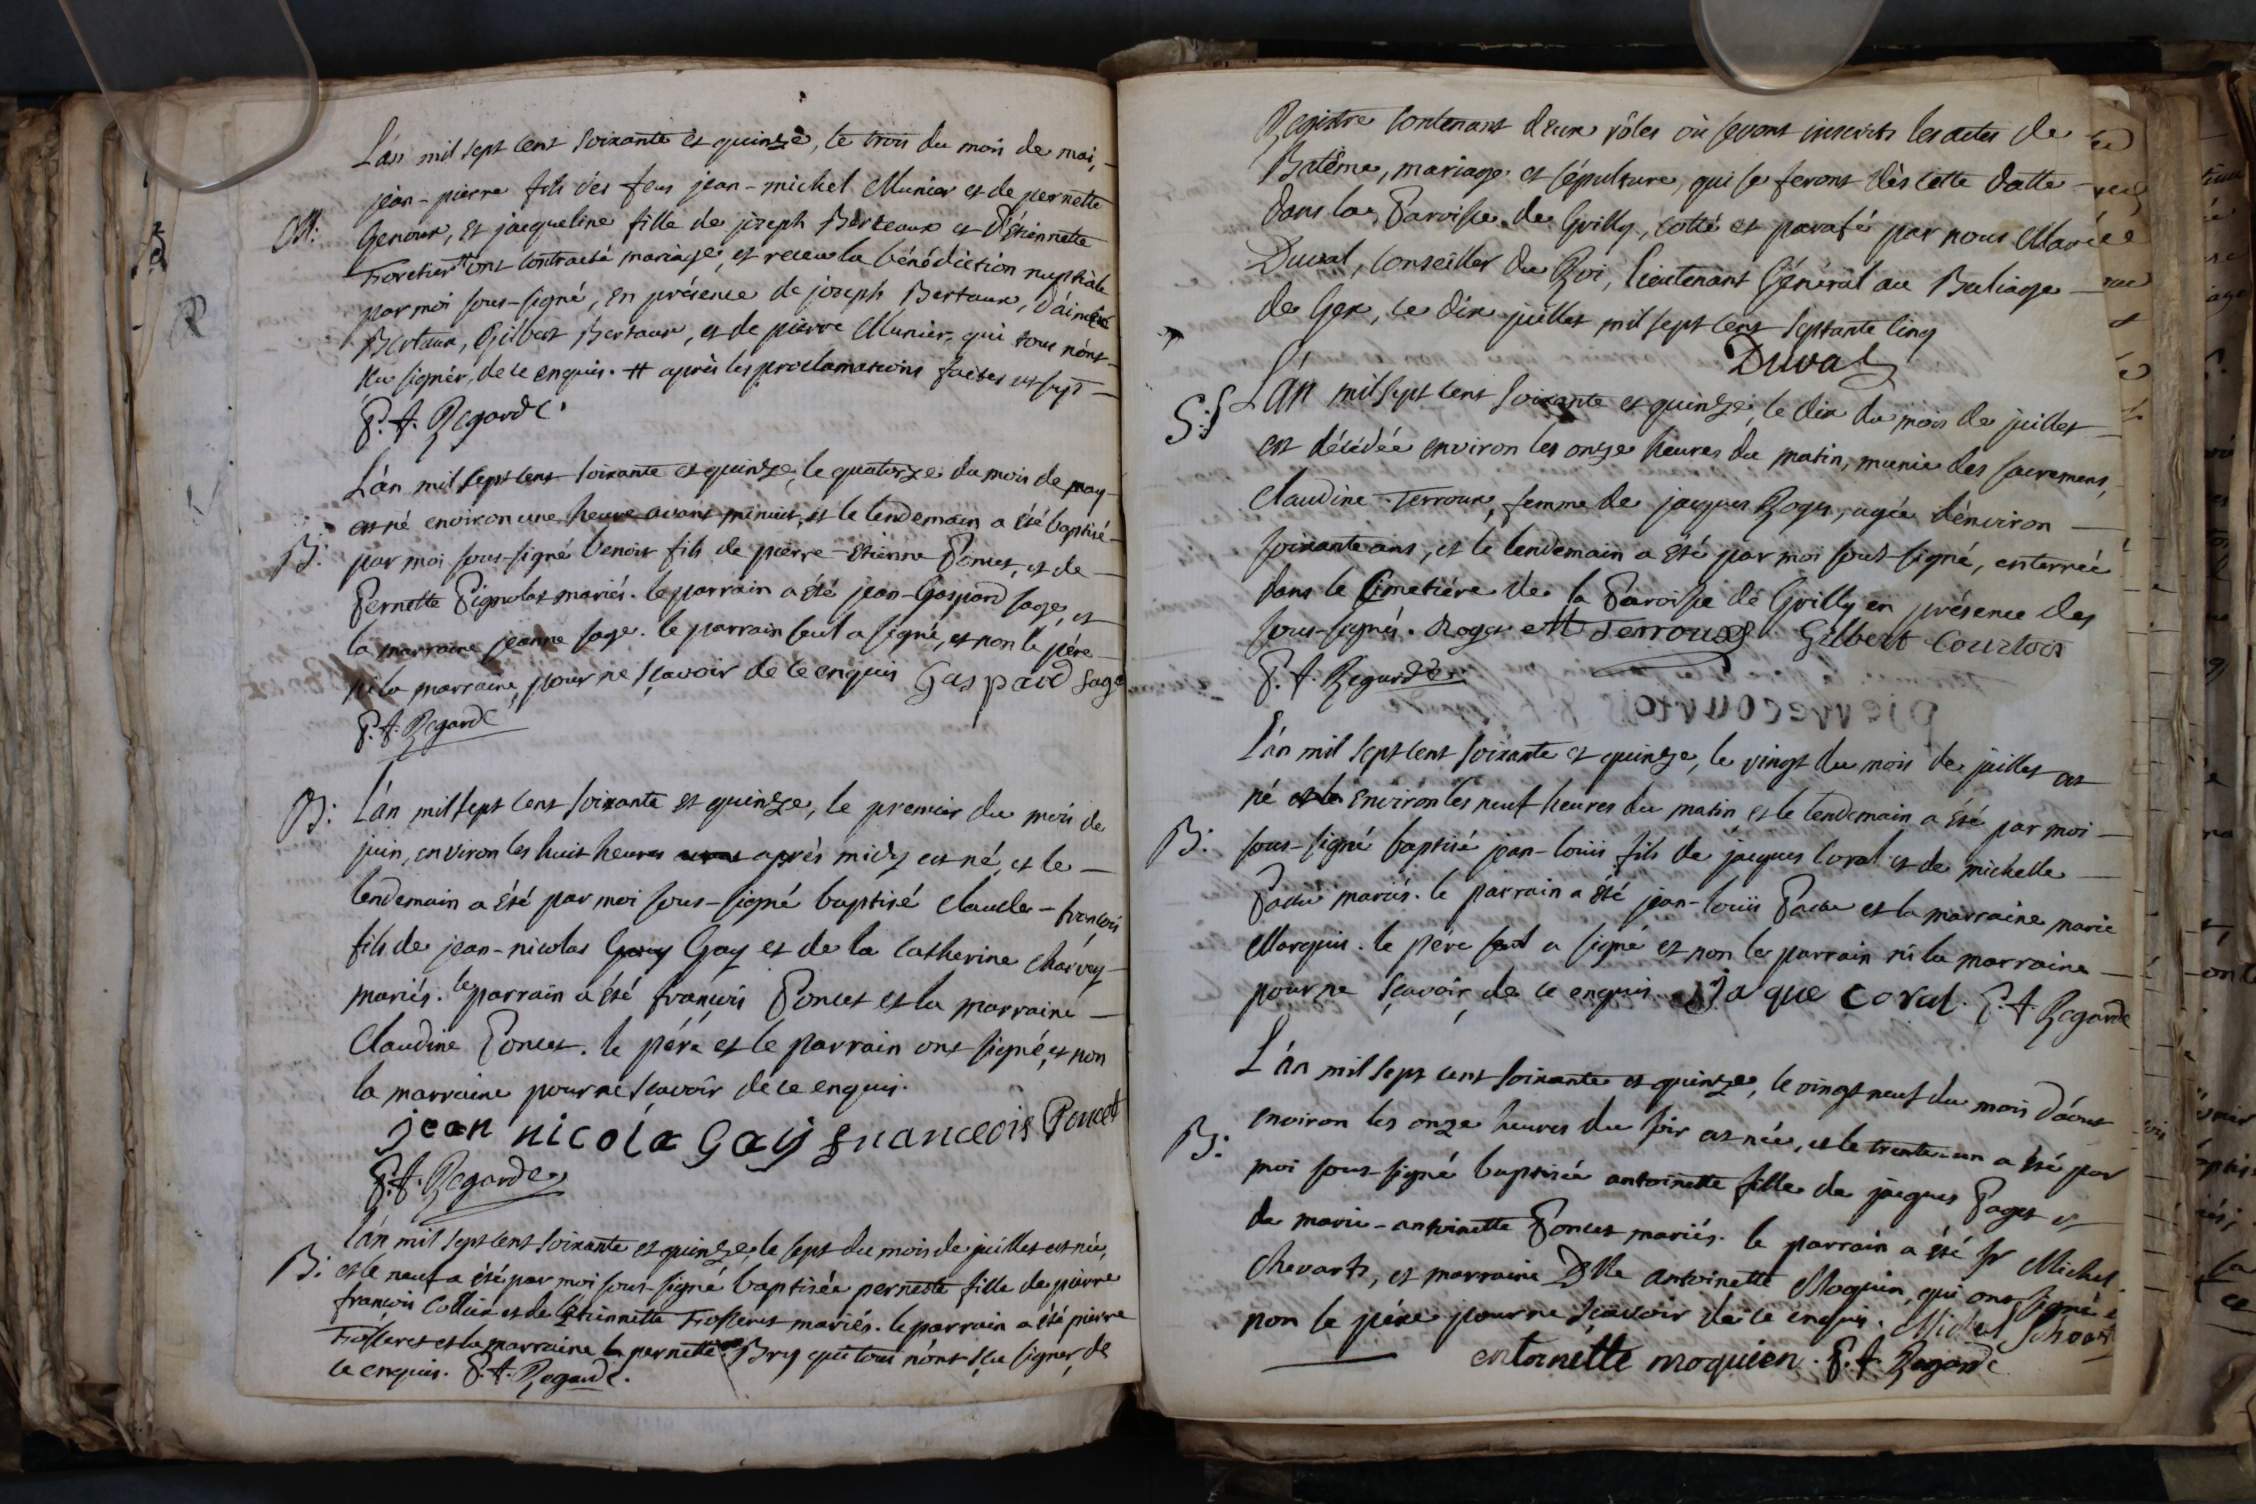 L'an mil sept cent soixante et quinze, le trois du mois de mai,
jean-pierre fils des feus jean-michel Munier et de pernette
M: Genoux, et jacqueline fille de joseph Berteaux et d'étiennette
Foretier # ont contracté mariage, et receu la bénédiction nuptiale
par moi sous-signé, en présence de joseph Bertaux, d'aimé
Bertaux, Gilbert Bertaux, et de pierre Munier, qui tous n'ont
sçu signer, de ce enquis. # après les proclamations faites
P. f. Regarde.
L'an mil sept cent soixante et quinze, le quatorze du mois de may
est né environ une heure avant minuit, et le lendemain a été baptisé
B: par moi sous-signé benoit fils de pierre-etienne Poncet, et de
Pernette Pignolat mariés. le parrain a été jean-Gaspard sage, et
la marraine jeanne sage. le parrain seul a signé, et non le père
ni la marraine, pour ne sçavoir de ce enquis Gaspard Sage
P. f. Regarde
B: L'an mil sept cent soixante et quinze, le premier du mois de
juin, environ les huit heures après midy est né, et le
lendemain a été par moi sous-signé baptisé claude-françois
fils de jean-nicolas Gay et de la catherine charvey
mariés. le parrain a été françois Poncet et la marraine
Claudine Poncet. le père et le parrain ont signé, et non
la marraine pour ne sçavoir de ce enquis.
jean nicola Gay franceois Poncet
P. f. Regarde
L'an mil sept cent soixante et quinze, le sept du mois de juillet est née,
B: et le neuf a été par moi sous-signé baptisée pernette fille de pierre
françois Collier et de l'étiennette Frosseret mariés. le parrain a été pierre
Frosseret et la marraine la pernette Bry qui tous n'ont sçu signer, de
ce enquis. P. f. Regarde.
Registre contenant deux rôles où seront inscrits les actes de
Batême, mariage et sépulture, qui se feront dès cette datte
dans la Paroisse de Grilly, cotté et parafé par nous Marie
Duval, conseiller du Roi, lieutenant Général au Baliage
de Gex, ce dix juillet mil sept cent septante cinq
Duval
S: L'an mil sept cent soixante et quinze, le dix du mois de juillet
est décédée environ les onze heures du matin, munie des sacremens,
Claudine Terroux, femme de jacques Roger, agée d'environ
soixante ans, et le lendemain a été par moi sous-signé, enterrée
dans le Cimetiére de la Paroisse de Grilly en présence des
sous-signés. Roger M Terroux Gilbert Courtois
P. f. Regarde
L'an mil sept cent soixante et quinze, le vingt du mois de juillet est
né environ les neuf heures du matin et le lendemain a été par moi
B: sous-signé baptisé jean-louis fils de jacques Coral et de michelle
Pacu mariés. le parrain a été jean-louis Pacu et la marraine marie
Marquis. le père seul a signé et non le parrain ni la marraine
pour ne sçavoir, de ce enquis. Jaque Coral. P. f. Regarde
L'an mil sept cent soixante et quinze, le vingt neuf du mois d'aout
environ les onze heures du soir est née, et le trente-un a été par
B: moi sous-signé baptisée antoinette fille de jacques Paget et
de marie-antoinette Poncet mariés. le parrain a été sr Michel
Chevarts, et marraine Dlle antoinette Moquin, qui ont signé et
non le père pour ne sçavoir de ce enquis. Michel
antoinette moquien. P. f. Regarde